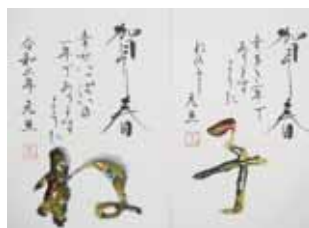 賀春
幸せいっぱいの
一年でありますように
令和二年 元旦
ね
賀春
幸多き一年で
ありますように
元旦
子